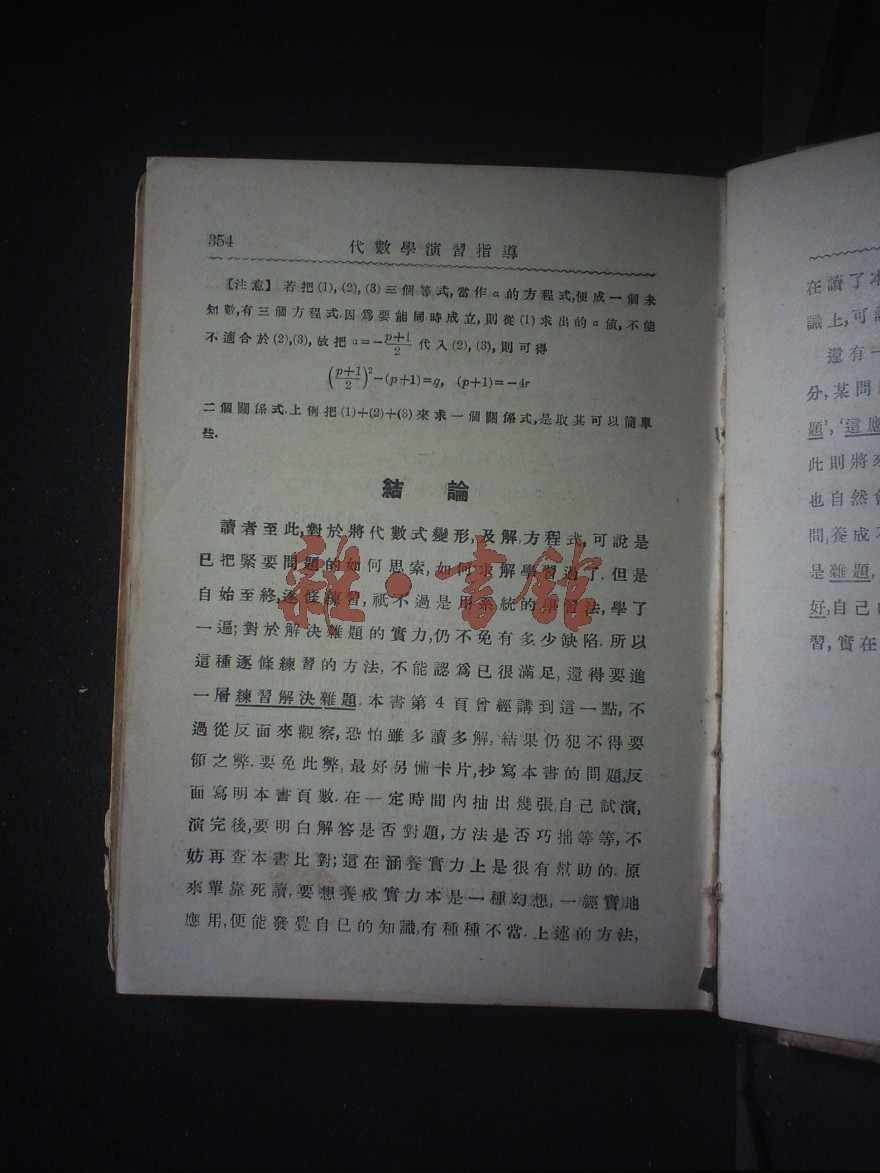 354
代數學演習指導
【注意】若把(1),(2),(3)三個等式,當作α的方程式,便成一個未
知數,有三個方程式.因爲要能同時成立,則從(1)求出的α值,不能
不適合於(2),(3),故把 α=-\frac{p+1}{2} 代入(2),(3),則可得
(\frac{p+1}{2})²-(p+1)=q, (p+1)=-4r
二個關係式.上例把(1)+(2)+(3)來求一個關係式,是取其可以簡單
些.
結論
讀者至此,對於將代數式變形,及解,方程式,可說是
已把緊要問題的如何思索,如何求解學習過了.但是
自始至終,逐條練習,祇不過是用系統的學習法,學了
一遍;對於解決雜題的實力,仍不免有多少缺陷.所以
這種逐條練習的方法,不能認爲已很滿足,還得要進
一層練習解決雜題.本書第4頁曾經講到這一點,不
過從反面來觀察,恐怕雖多讀多解,結果仍犯不得要
領之弊.要免此弊,最好另備卡片,抄寫本書的問題,反
面寫明本書頁數.在一定時間內抽出幾張,自己試演,
演完後,要明白解答是否對題,方法是否巧拙等等,不
妨再查本書比對;這在涵養實力上是很有幫助的.原
來單靠死讀,要想養成實力本是一種幻想,一經實地
應用,便能發覺自已的知識,有種種不當.上述的方法,
雜·書館
在讀了本
識上,可
還有一
分,某問
題’,‘這應
此則將來
也自然會
間,養成不
是雜題,
好,自己
習,實在